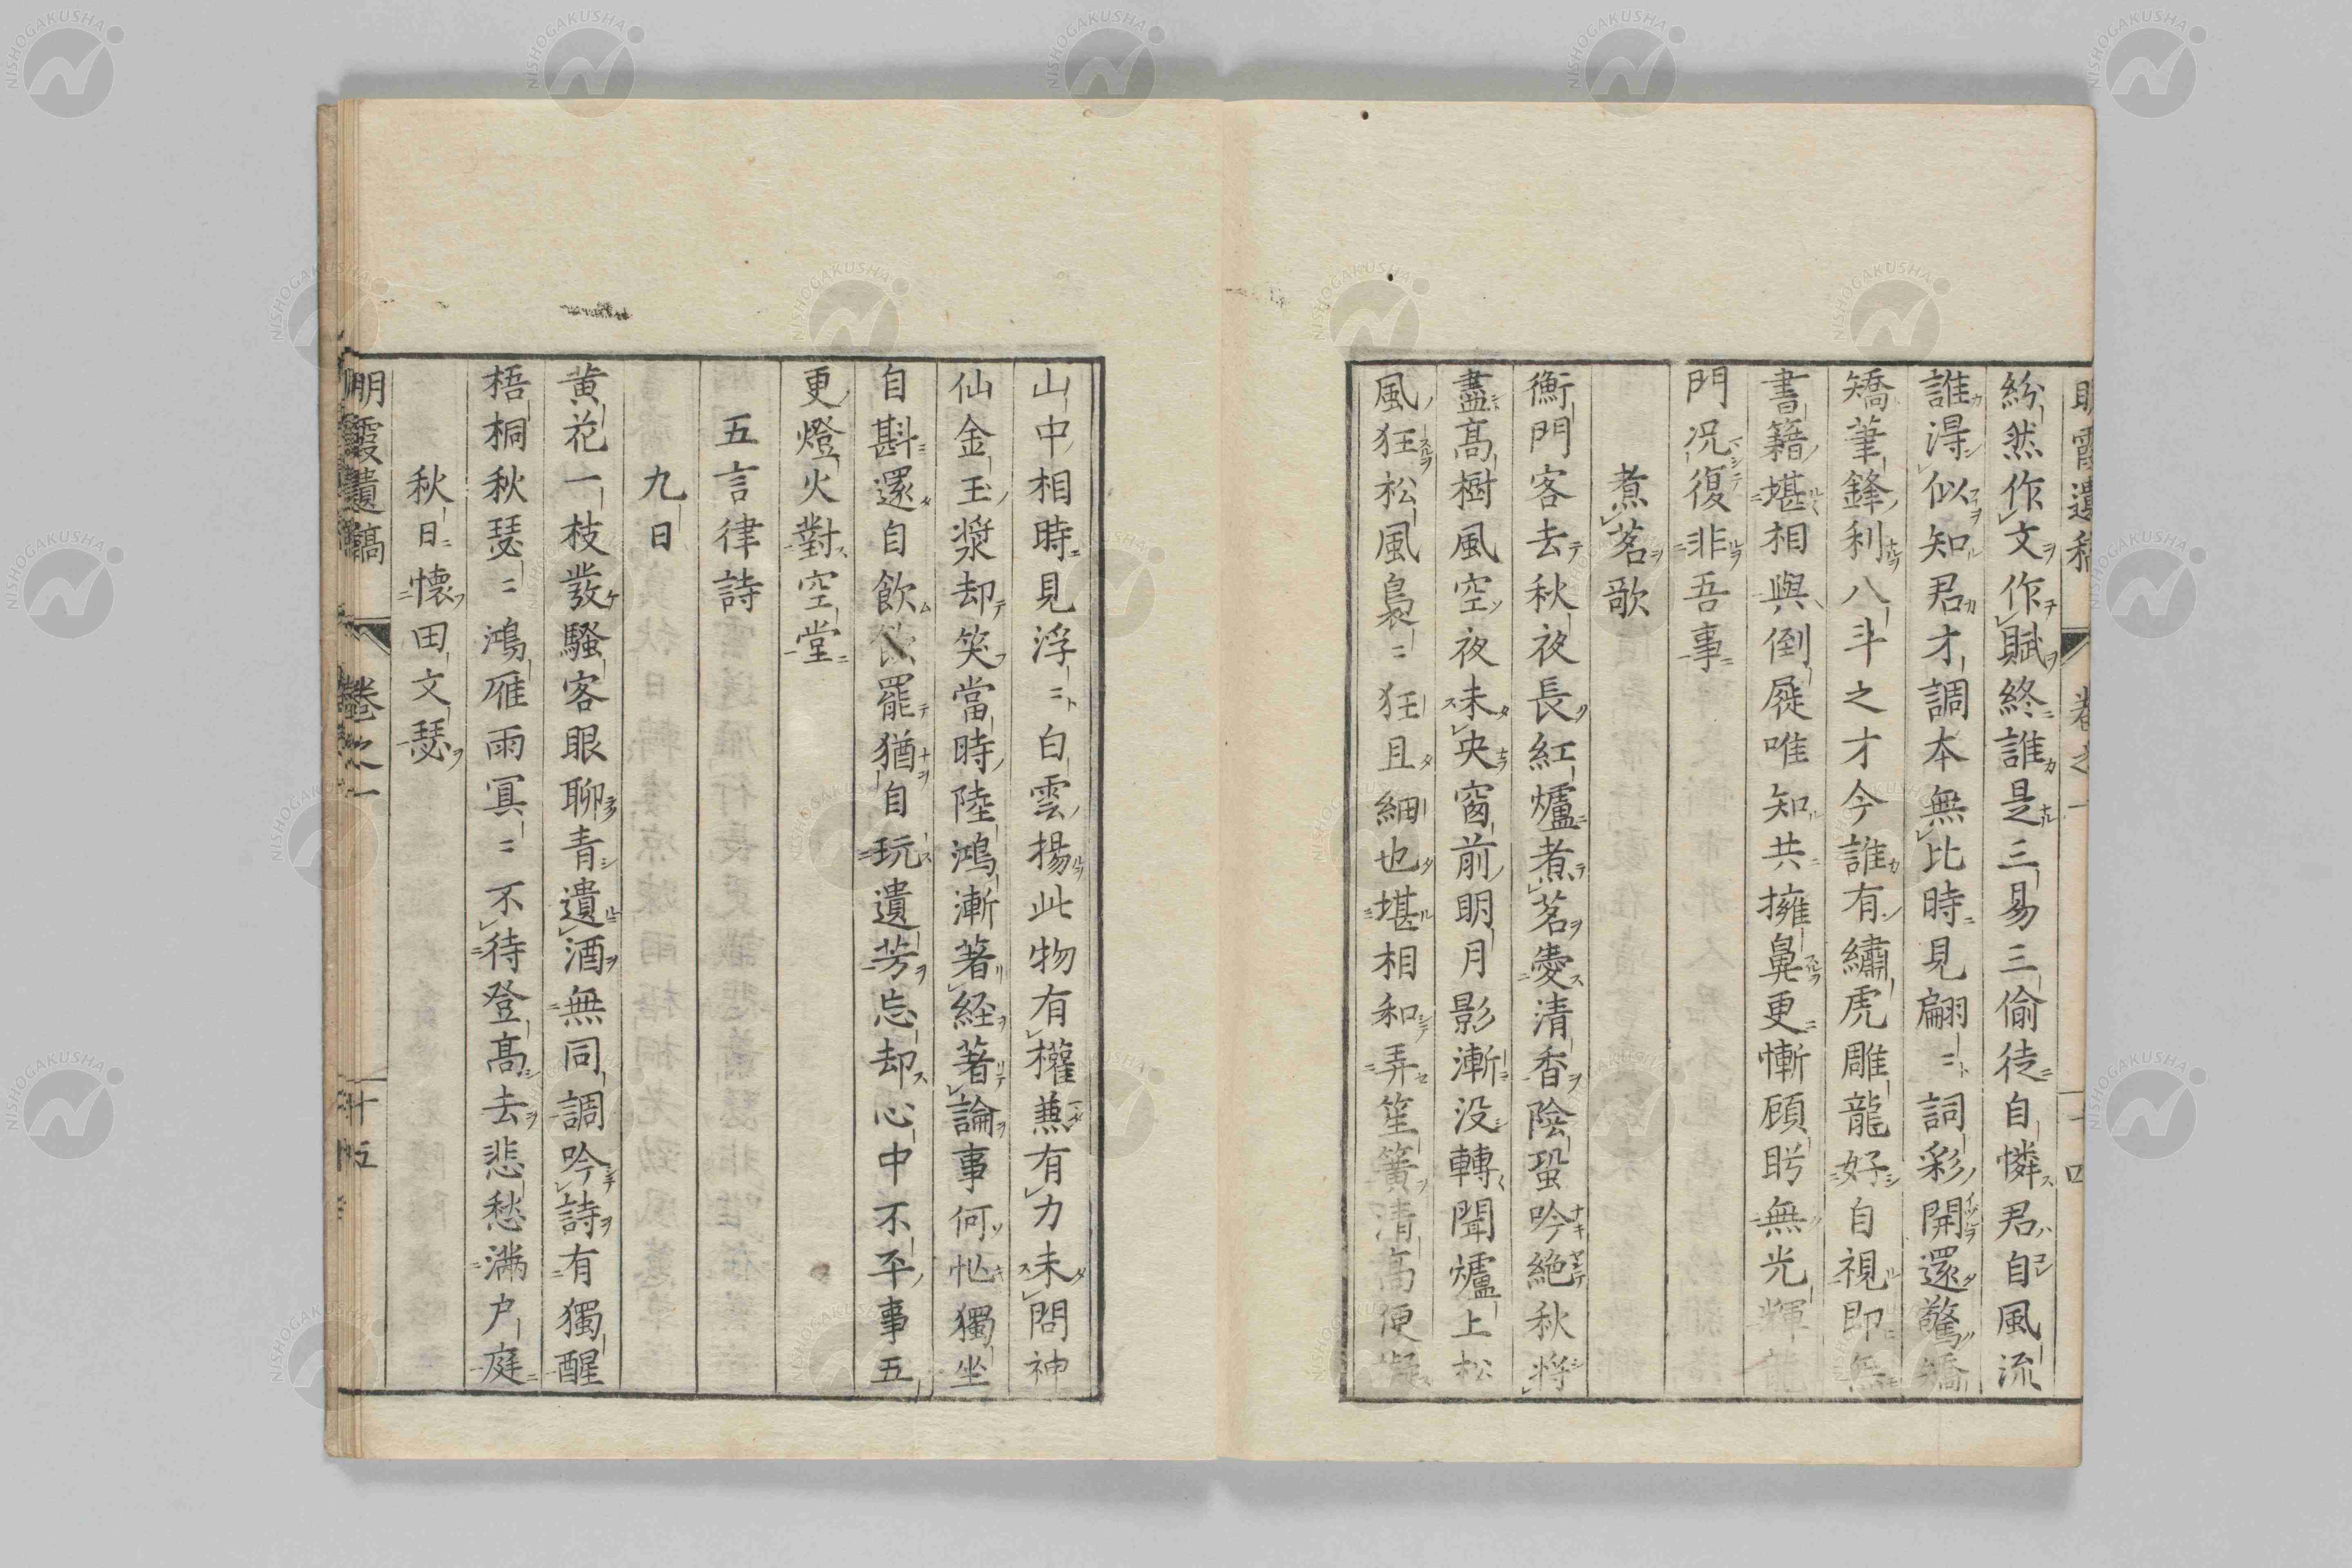 明霞遺稿 卷之一 十四
紛然作文作賦終誰是三易三偷徒自憐君自風流
誰得似知君才調本無比時見翩〻詞彩開還驚矯
矯筆鋒利八斗之才今誰有繡虎雕龍好自視即無
書籍堪相與倒屣唯知共擁鼻更慚顧眄無光輝
門況復非吾事
煮茗歌
衡門客去秋夜長紅爐煮茗愛清香陰蛩吟絕秋將
盡高樹風空夜未央窗前明月影漸没轉聞爐上松
風狂松風裊〻狂且細也堪相和弄笙簧清高便凝
山中相時見浮〻白雲揚此物有權兼有力未問神
仙金玉漿却笑當時陸鴻漸著経著論事何忙獨坐
自斟還自飲飲罷猶自玩遺芳忘却心中不平事五
更燈火對空堂
五言律詩
九日
黄花一枝發騷客眼聊青遺酒無同調吟詩有獨醒
梧桐秋瑟〻鴻雁雨冥〻不待登高去悲愁滿户庭
秋日懷田文瑟
明霞遺稿 卷之一 十五
NISHOGAKUSHA